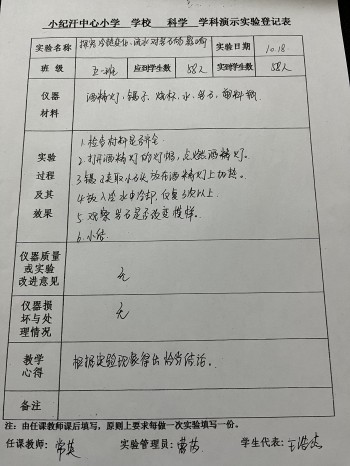 小纪汗中心小学 学校 科学 学科演示实验登记表
实验名称 探究冷热变化、流水对岩石的影响 实验日期 10.18
班级 五一班 应到学生数 58人 实到学生数 58人
仪器材料 酒精灯、镊子、烧杯、水、岩石、塑料瓶
实验过程及其效果
1.检查材料是否齐全.
2.打开酒精灯的灯帽,点燃酒精灯.
3.镊子夹取小石头放在酒精灯上加热.
4.放入冷水中冷却,反复3次以上.
5.观察岩石是否改变模样.
6.小结.
仪器质量或实验改进意见 无
仪器损坏与处理情况 无
教学心得 根据实验现象得出恰当结论.
备注
注:由任课教师课后填写,原则上要求每做一次实验填写一份。
任课教师: 常英 实验管理员: 学生代表: 王浩